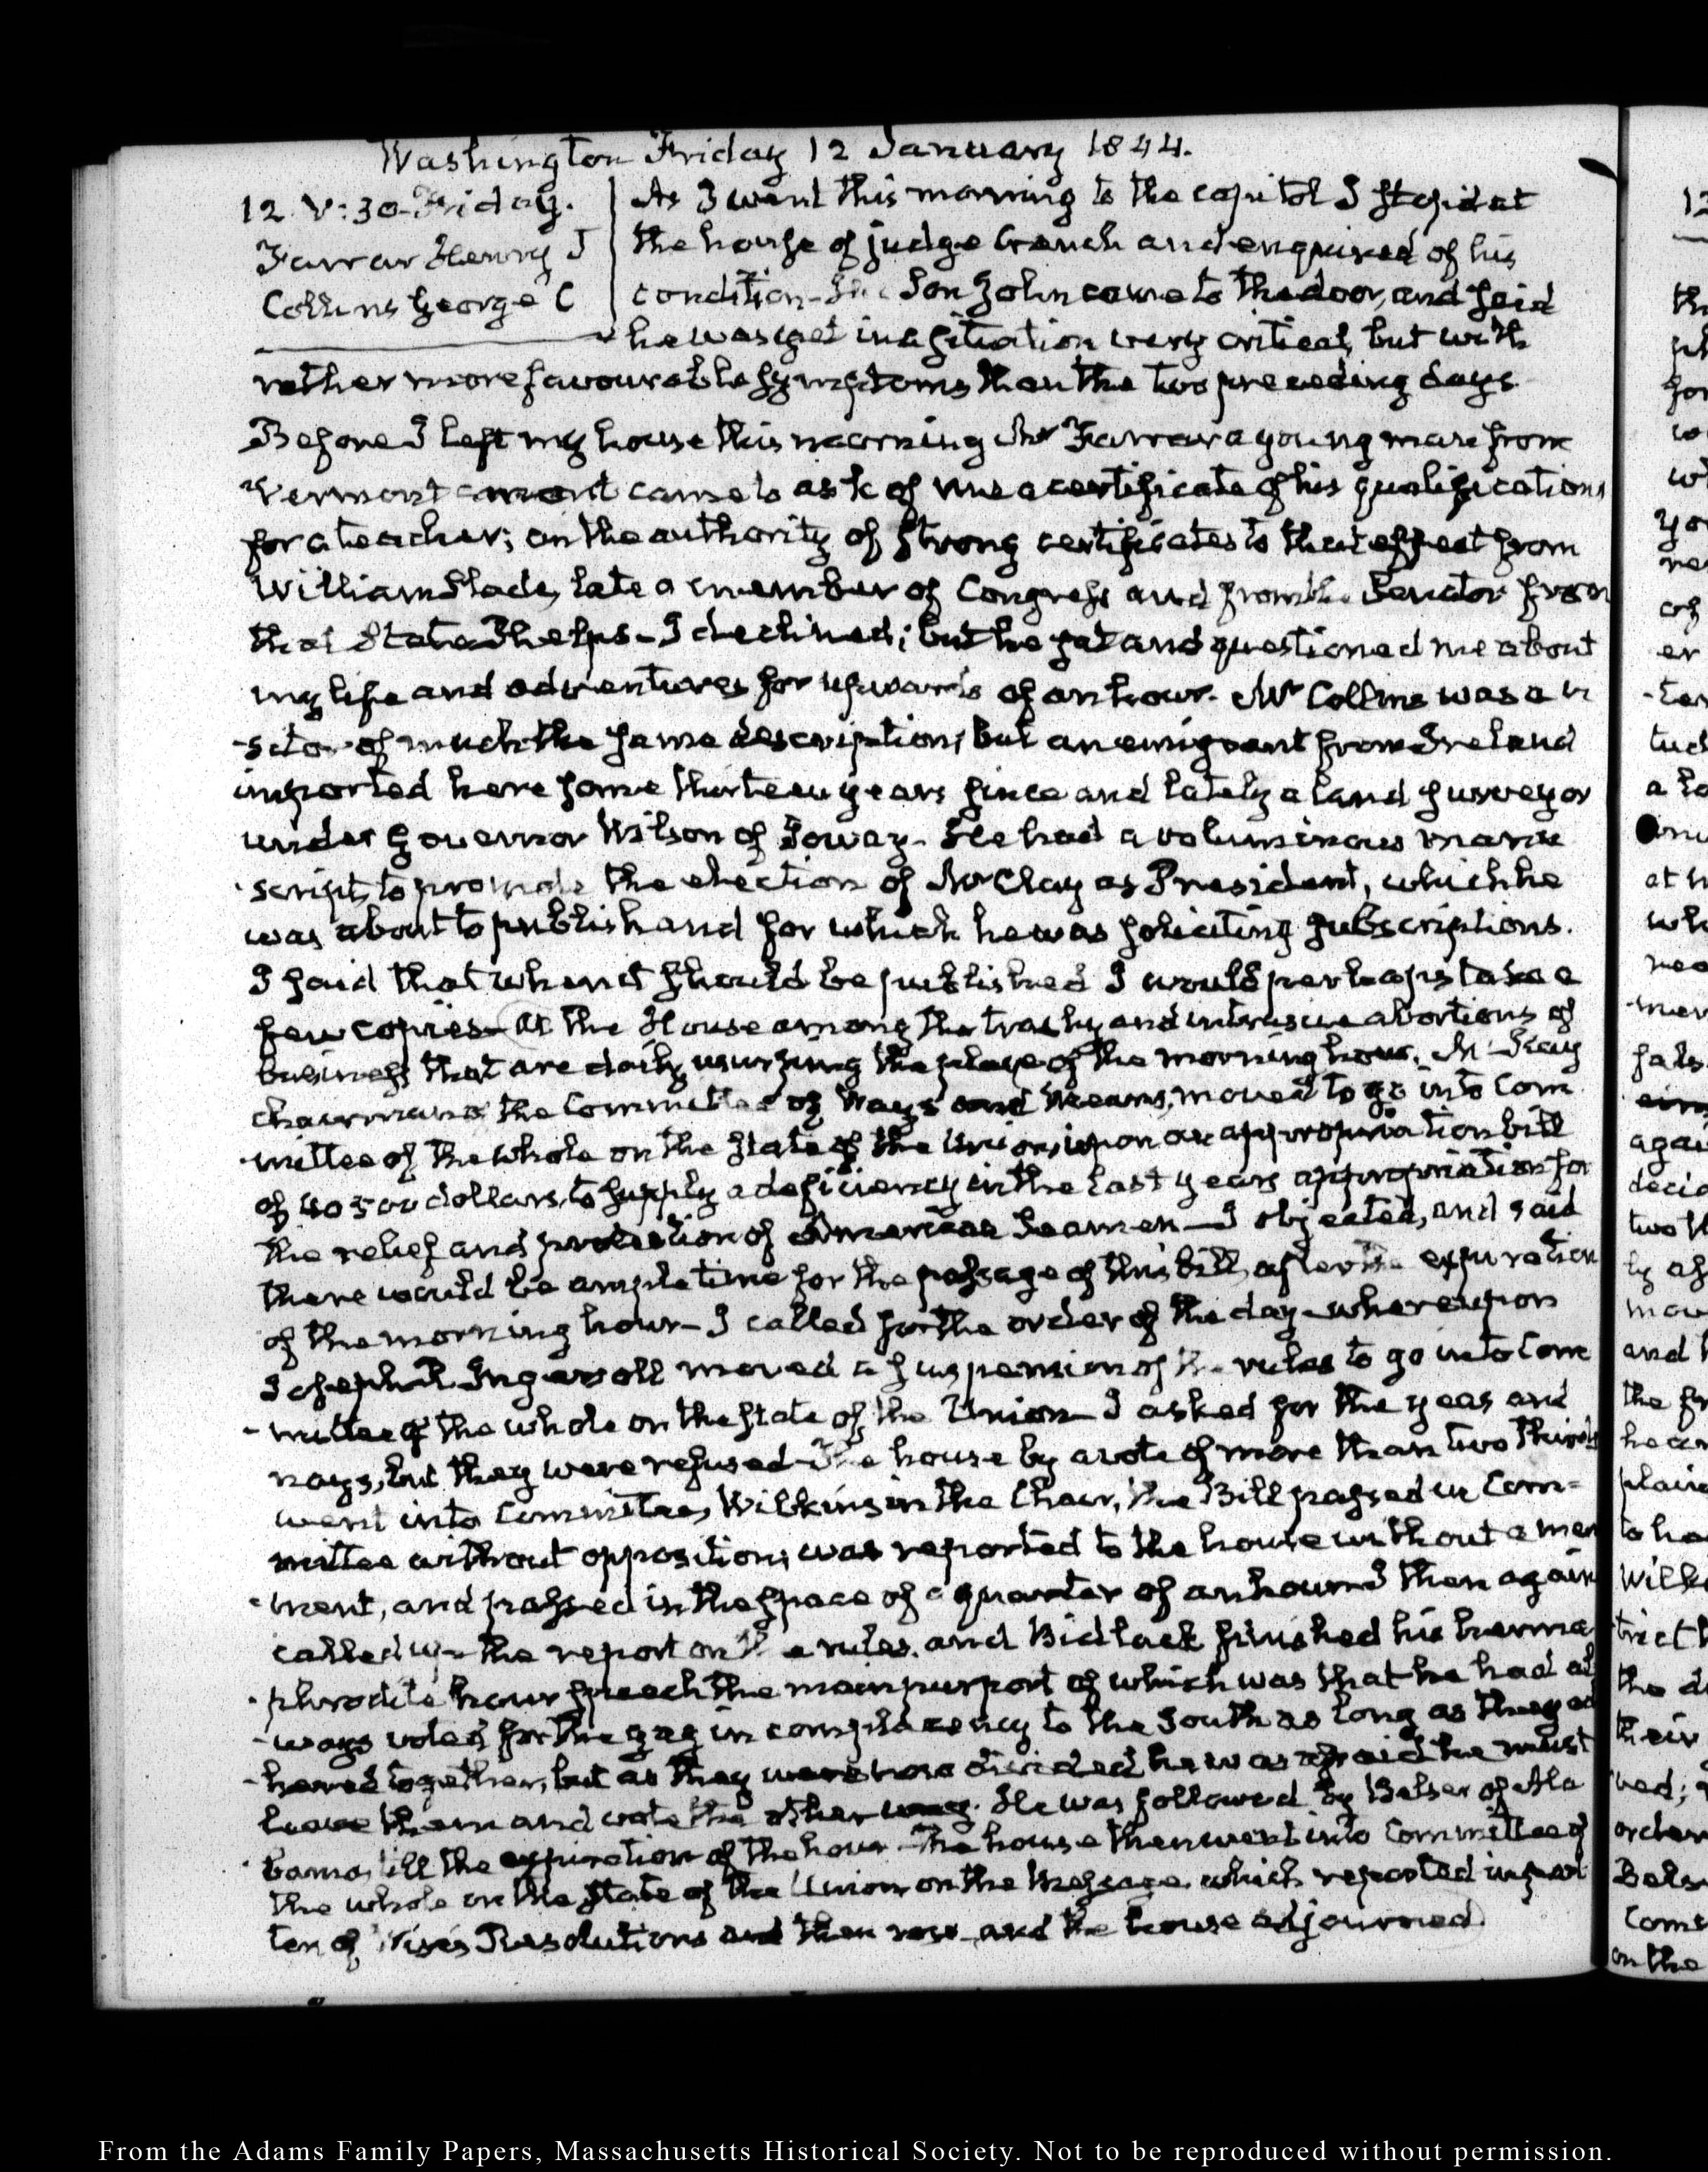 Washington Friday 12 January 1844.
12. V:30. Friday.
Farrar Henry J
Collins George C
As I went this morning to the capitol I stopp'd at
the house of judge Cranch and enquired of his
condition— Son John came to the door, and said
he was yet in a situation very critical, but with
rather more favourable symptoms than the two preceding days
Before I left my house this morning Mr Farrar a young man from
Vermont came to ask of me a certificate of his qualifications
for a teacher; on the authority of strong certificates to that effect from
William Slade, late a member of Congress and from the Senator from
that State Phelps— I declined; but he sat and questioned me about
my life and adventures for upwards of an hour. Mr Collins was a vi
-sitor of much the same description; but an emigrant from Ireland
imported here some thirteen years since and lately a land surveyor
under Governor Wilson of Ioway. He had a voluminous manu
-script, to promote the election of Mr Clay as President, which he
was about to publish and for which he was soliciting subscriptions.
I said that when it should be published I would perhaps take a
few copies— At the House among the trashy and intrusive abortions of
business that are daily usurping the place of the morning hour, McKay
chairman of the Committee of Ways and Means, moved to go into Com
-mittee of the whole on the state of the Union, upon an appropriation bill
of 40500 dollars, to supply a deficiency in the last years appropriation for
the relief and protection of American Seamen— I objected, and said
there would be ample time for the passage of this bill, after the expiration
of the morning hour— I called for the order of the day— whereupon
Joseph R. Ingersoll moved a suspension of the rules to go into Com
-mittee of the whole on the state of the Union— I asked for the yeas and
nays, but they were refused— The house by a vote of more than two thirds
went into Committee, Wilkins in the Chair, the Bill passed in Com=
mittee without opposition; was reported to the house without amend
-ment, and passed in the space of a quarter of an hour— I then again
called up the report on the rules, and Bidlack finished his herma
-phrodite hour speech the main purport of which was that he had al
-ways voted for the gag in complacency to the South as long as they ad
-hered together, but as they were now divided he was afraid he must
leave them and vote the other way. He was followed by Belser of Ala
-bama, till the expiration of the hour— The house then went into Committee of
the whole on the state of the Union on the Message, which reported in part
ten of Wise's Resolutions and then rose and the house adjourned.
From the Adams Family Papers, Massachusetts Historical Society. Not to be reproduced without permission.